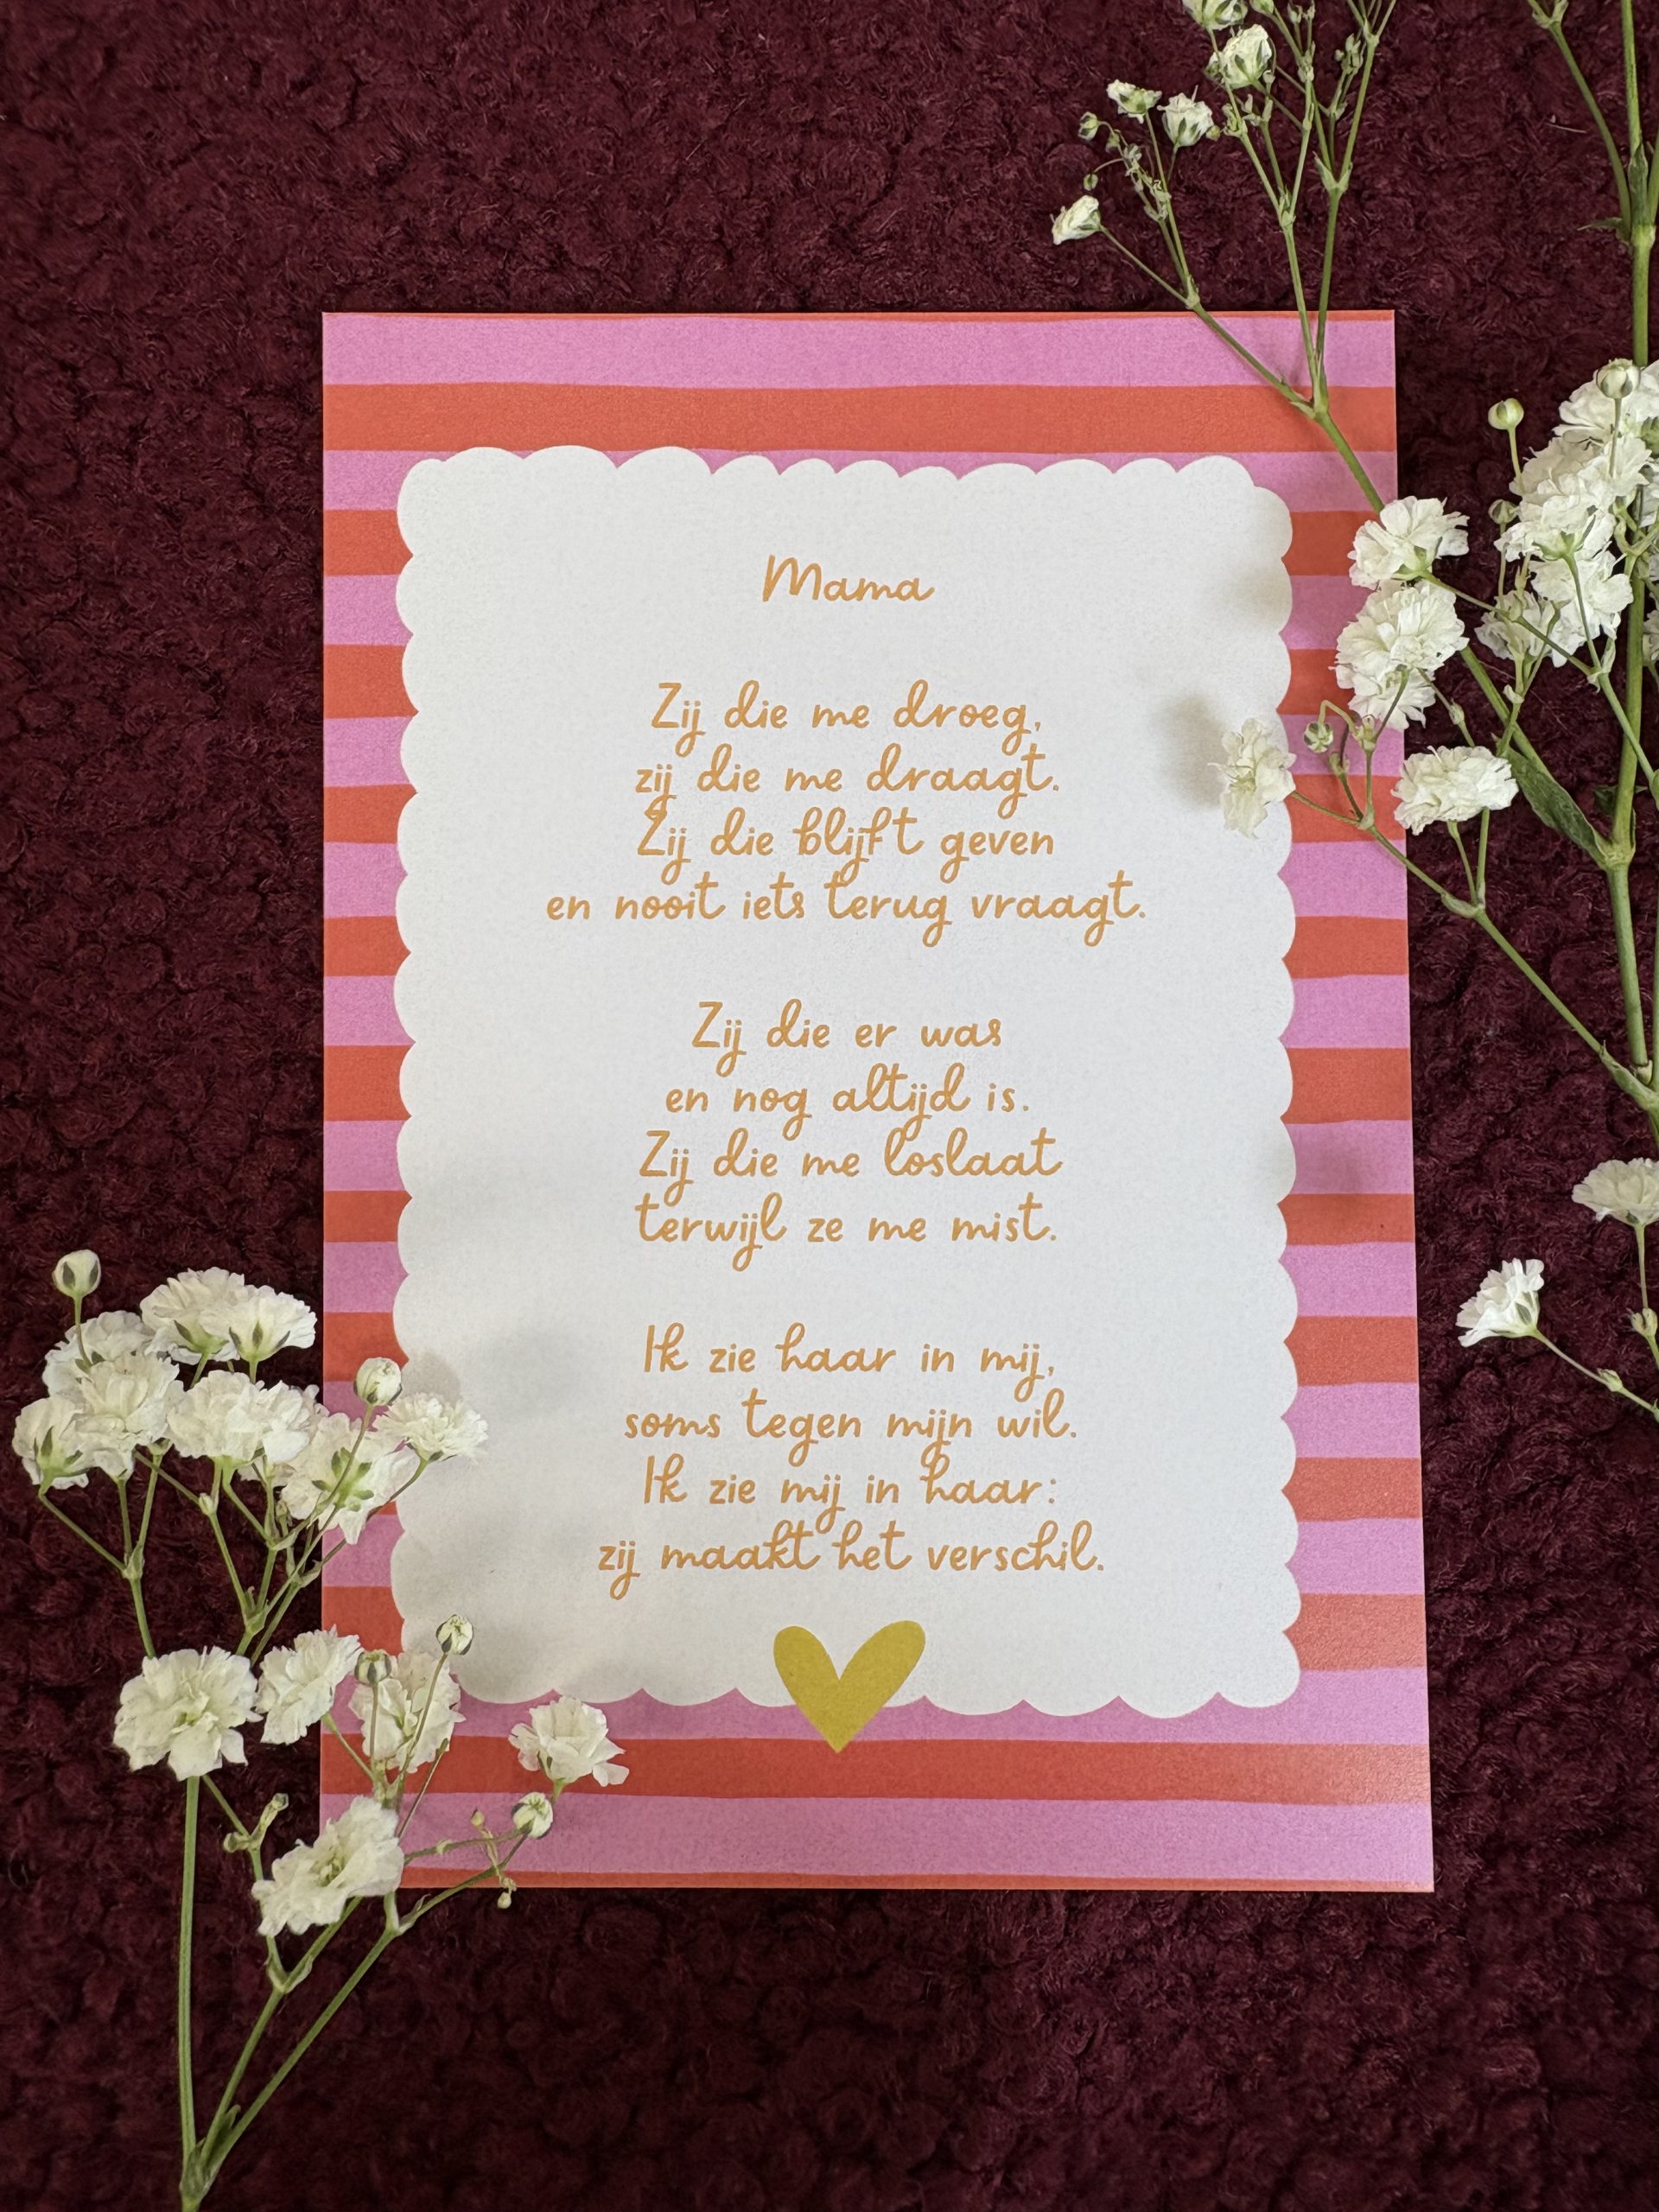 Mama
Zij die me droeg,
zij die me draagt.
Zij die blijft geven
en nooit iets terug vraagt.
Zij die er was
en nog altijd is.
Zij die me loslaat
terwijl ze me mist.
Ik zie haar in mij,
soms tegen mijn wil.
Ik zie mij in haar:
zij maakt het verschil.